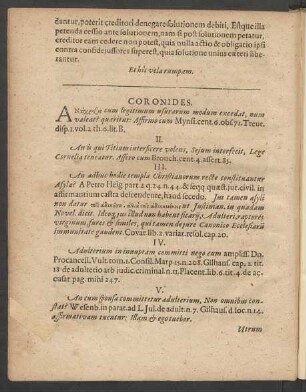 dantur, poterit creditori denegare solutionem debiti, Estque illa
petenda cessio ante solutionem, nam si post solutionem petatur,
creditor eam cedere non potest, quia nulla actio & obligatio ipsi
contra confidejussores superest, quia solutione unius cæteri libe-
rantur.
Et hîc vela rumpam.
CORONIDES.
cum legitimum usurarum modum excedat, num
valeat? quæritur: Affirmo cum Myns. cent. 6. obs. 71. Treut.
disp. 2. vol. 2. th. 6. lit. B.
II.
An is qui Titium interficere volens, Sejum interfecit, Lege
Cornelia teneatur: Assero cum Bronch. cent. 4. assert. 85.
III.
An adhuc hodie templa Christianorum recte constituantur
Asyla? A Petro Heig part 2. q. 24. n. 44. & seqq. quæst. jur. civil. in
affirmantium castra descendente, haud secedo. Jm tamen asyli
non datur ut Justinian. in quodam
Novel. dicit. Ideoq; jus illud non habent sicarij, Adulteri, raptores
virginum, fures & similes, qui tamen de jure Canonico Ecclesiarũ
immunitate gaudent. Covar. lib. 2. variar. resol. cap. 20.
IV.
Adulterium in innuptam committi nego cum ampliss. Dn.
Procancell. Vult. tom. 2. Consil. Marp. 15. n. 208. Gilhaus. cap. 2. tit.
18. de adulterio arb judic. criminal. n. 11. Placent. lib. 6. tit. 4. de ac-
cusat. pag. mihi 247.
V.
An cum sponsa committatur adulterium, Non omnibus con-
stat? Wesenb. in parat. ad L. Jul. de adult. n. 7. Gilhaus. d. loc. n. 14.
affirmativam tuentur; Illam & ego tuebor.
Utrum